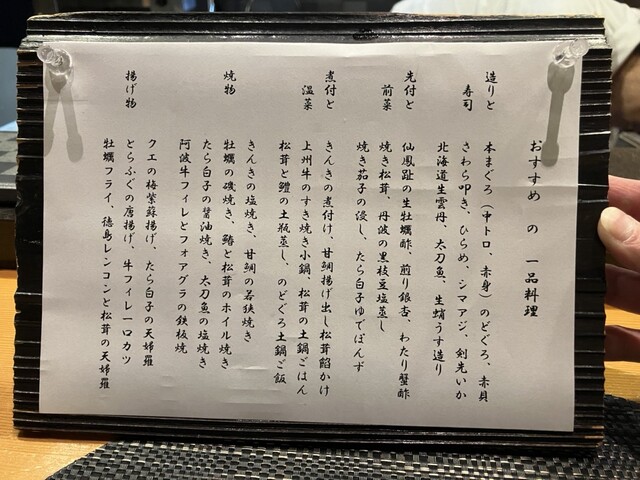 おすすめ の 一品料理
造りと 本まぐろ（中トロ、赤身）のどぐろ、赤貝
寿司 さわら叩き、ひらめ、シマアジ、剣先いか
北海道生雲丹、太刀魚、生蛸うす造り
先付と 仙鳳趾の生牡蠣酢、煎り銀杏、わたり蟹酢
前菜 焼き松茸、丹波の黒枝豆塩蒸し
焼き茄子の浸し、たら白子ゆでぽんず
煮付と きんきの煮付け、甘鯛揚げ出し松茸餡かけ
温菜 上州牛のすき焼き小鍋、松茸の土鍋ごはん
松茸と鱧の土瓶蒸し、のどぐろ土鍋ご飯
焼物 きんきの塩焼き、甘鯛の若狭焼き
牡蠣の磯焼き、鰆と松茸のホイル焼き
たら白子の醤油焼き、太刀魚の塩焼き
阿波牛フィレとフォアグラの鉄板焼
揚げ物 クエの梅紫蘇揚げ、たら白子の天婦羅
とらふぐの唐揚げ、牛フィレ一口カツ
牡蠣フライ、徳島レンコンと松茸の天婦羅